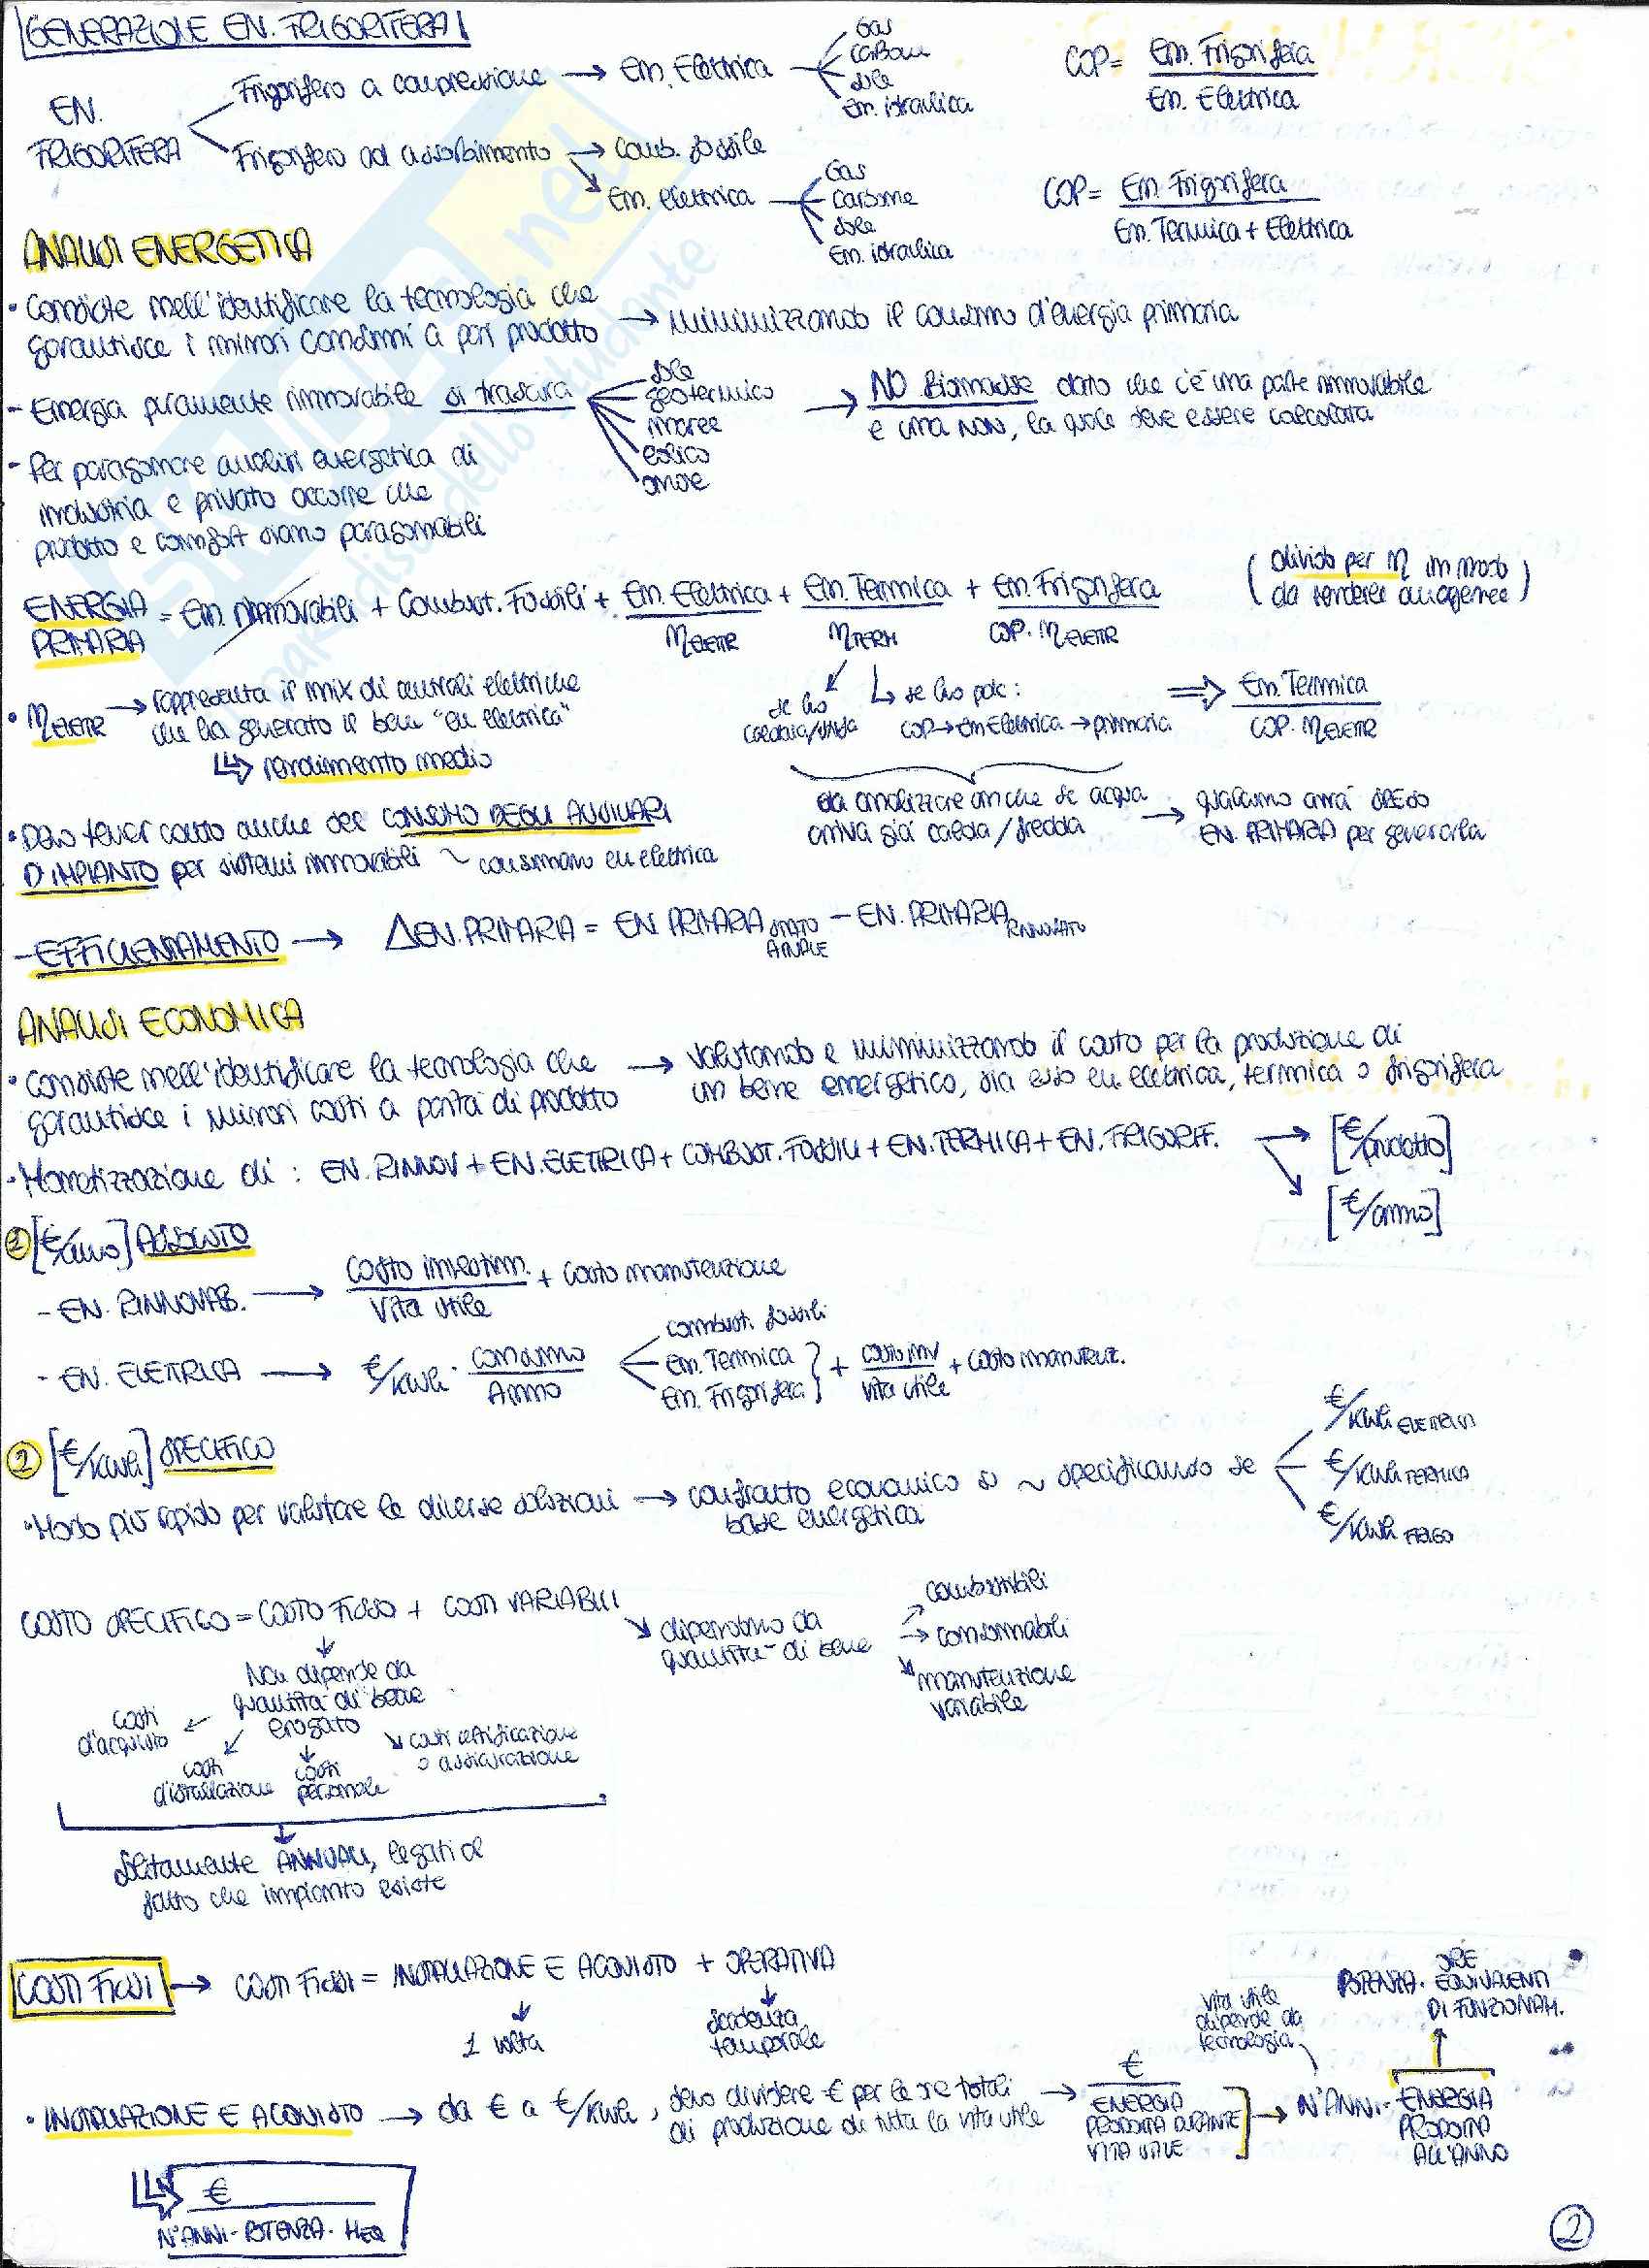 GENERAZIONE EN. FRIGORIFERA
EN. FRIGORIFERA
Frigorifero a compressione → En. Elettrica
Gas
Carbone
Sole
En. idraulica
COP = En. Frigorifera / En. Elettrica
Frigorifero ad assorbimento → Comb. fossile
En. elettrica
Gas
Carbone
Sole
En. idraulica
COP = En. Frigorifera / En. Termica + Elettrica
ANALISI ENERGETICA
• Consiste nell'identificare la tecnologia che
garantisce i minori consumi a pari prodotto → minimizzando il consumo d'energia primaria
- Energia puramente rinnovabile si trascura
sole
geotermico
maree
eolico
onde
→ NO Biomasse dato che c'è una parte rinnovabile
e una NON, la quale deve essere calcolata
- Per paragonare analisi energetica di
industria e privato occorre che
prodotto e comfort siano paragonabili
ENERGIA PRIMARIA = En. rinnovabili + Combust. Fossili + En. Elettrica / η ELETTR + En. Termica / η TERM + En. Frigorifera / COP · η ELETTR
(divido per η in modo
da renderle omogenee)
• η ELETTR → rappresenta il mix di centrali elettriche
che ha generato il bene "en elettrica"
↳ rendimento medio
se ho
caldaia/stufa
↳ se ho pdc:
COP → En Elettrica → primaria
⇒ En. Termica / COP · η ELETTR
da analizzare anche se acqua
arriva già calda / fredda
→ qualcuno avrà speso
EN. PRIMARIA per generarla
• Devo tener conto anche del CONSUMO DEGLI AUSILIARI
D'IMPIANTO per sistemi rinnovabili ~ consumano en elettrica
- EFFICIENTAMENTO → ΔEN. PRIMARIA = EN PRIMARIA STATO ATTUALE - EN. PRIMARIA RINNOVATO
ANALISI ECONOMICA
• Consiste nell'identificare la tecnologia che
garantisce i minori costi a parità di prodotto
→ valutando e minimizzando il costo per la produzione di
un bene energetico, sia esso en. elettrica, termica o frigorifera
• Monetizzazione di: EN. RINNOV + EN. ELETTRICA + COMBUST. FOSSILI + EN. TERMICA + EN. FRIGORIF.
→ [€/prodotto]
[€/anno]
① [€/anno] ASSOLUTO
- EN. RINNOVAB. → Costo investim. / Vita utile + costo manutenzione
- EN. ELETTRICA → €/kWh · consumo / Anno
combust. fossili
En. Termica
En. Frigorifera
} + costo inv / vita utile + costo manutenz.
② [€/kWh] SPECIFICO
• Modo più rapido per valutare le diverse soluzioni → confronto economico su
base energetica
~ specificando se
€/kWh ELETTRICI
€/kWh TERMICA
€/kWh FRIGO
COSTO SPECIFICO = COSTO FISSO + COSTI VARIABILI
dipendono da
quantità di bene
combustibili
→ consumabili
manutenzione
variabile
Non dipende da
quantità di bene
erogato
costi
d'acquisto
costi
d'installazione
costi
personale
costi certificazione
o assicurazione
Solitamente ANNUALI, legati al
fatto che impianto esiste
COSTI FISSI → COSTI FISSI = INSTALLAZIONE E ACQUISTO + OPERATIVA
1 volta
scadenza
temporale
vita utile
dipende da
tecnologia
POTENZA · ORE
EQUIVALENTI
DI FUNZIONAM.
• INSTALLAZIONE E ACQUISTO → da € a €/kWh, devo dividere € per le ore totali
di produzione di tutta la vita utile
→ € / ENERGIA
PRODOTTA DURANTE
VITA UTILE
→ N°ANNI · ENERGIA
PRODOTTA
ALL'ANNO
↳ € / N°ANNI · POTENZA · HEQ
2
SKUOLA.net